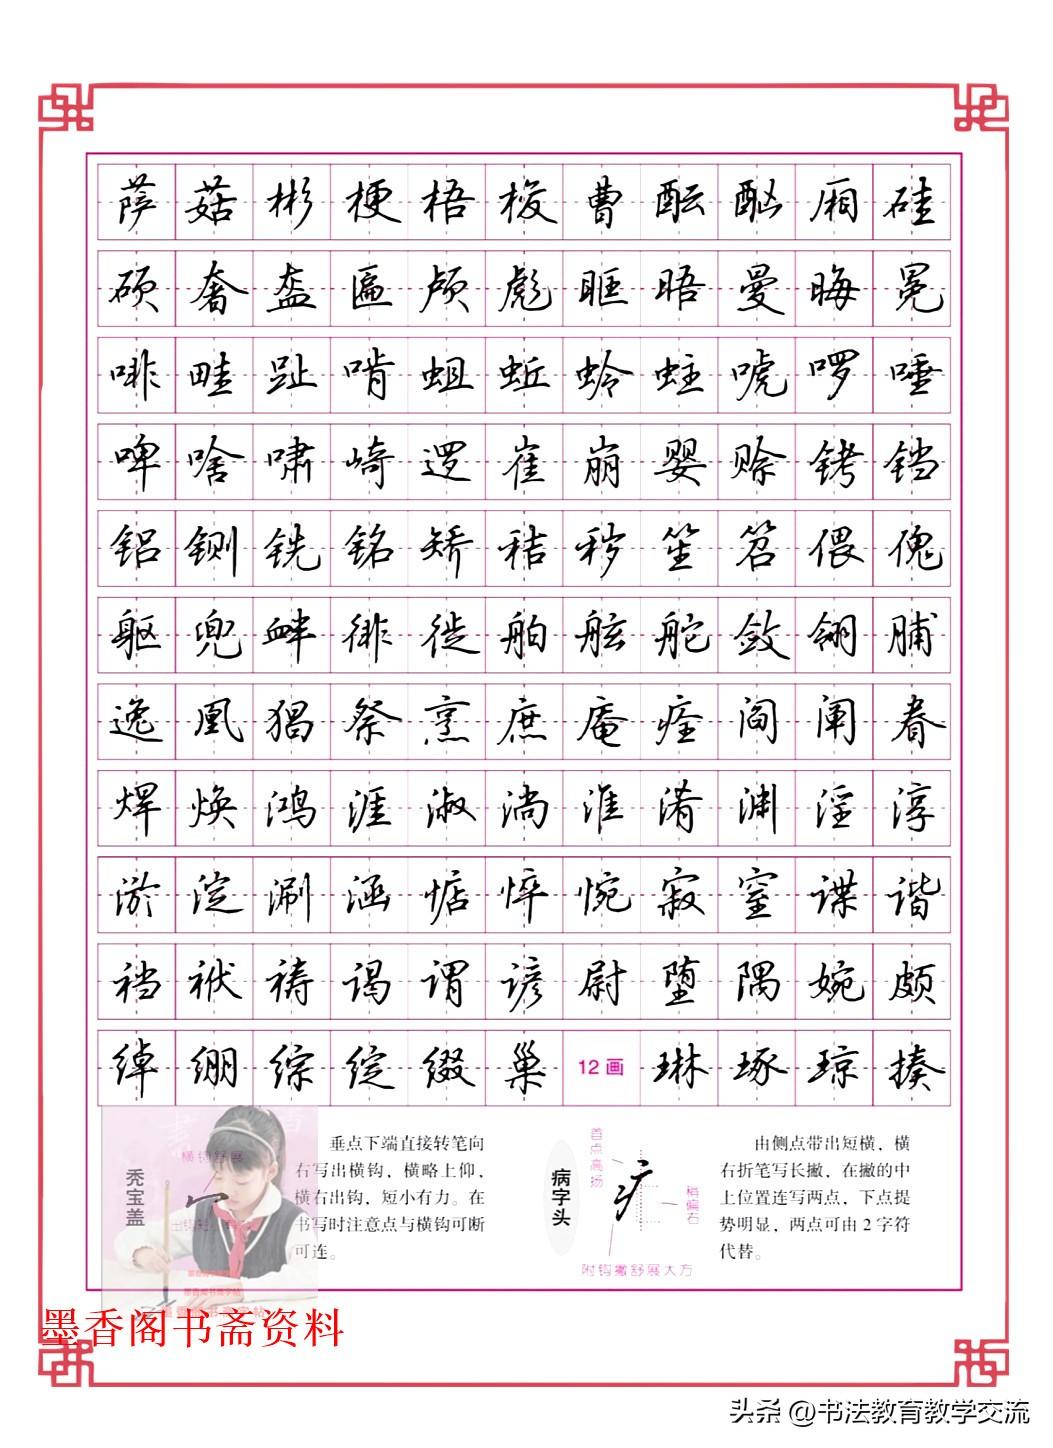 萨菇彬梗梧梭曹酝酗厢硅
硕奢盔匾颅彪眶晤曼晦冕
啡畦趾啃蛆蚯蛉蛀唬啰唾
啤啥啸崎逻崔崩婴赊铐铛
铝铡铣铭矫秸秽笙笤偎傀
躯兜衅徘徙舶舷舵敛翎脯
逸凰猖祭烹庶庵痊阎阐眷
焊焕鸿涯淑淌淮淆渊淫淳
淤淀涮涵惦悴惋寂窒谋谐
裆袱祷谒谓谚尉堕隅婉颇
绰绷综绽缀巢12画琳琢琼揍
秃宝盖
横钩舒展
垂点下端直接转笔向
右写出横钩，横略上仰，
横右出钩，短小有力。在
书写时注意点与横钩可断
可连。
病字头
首点高扬
稍偏右
附钩撇舒展大方
由侧点带出短横，横
右折笔写长撇，在撇的中
上位置连写两点，下点提
势明显，两点可由2字符
代替。
墨香阁书斋资料
头条 @书法教育教学交流